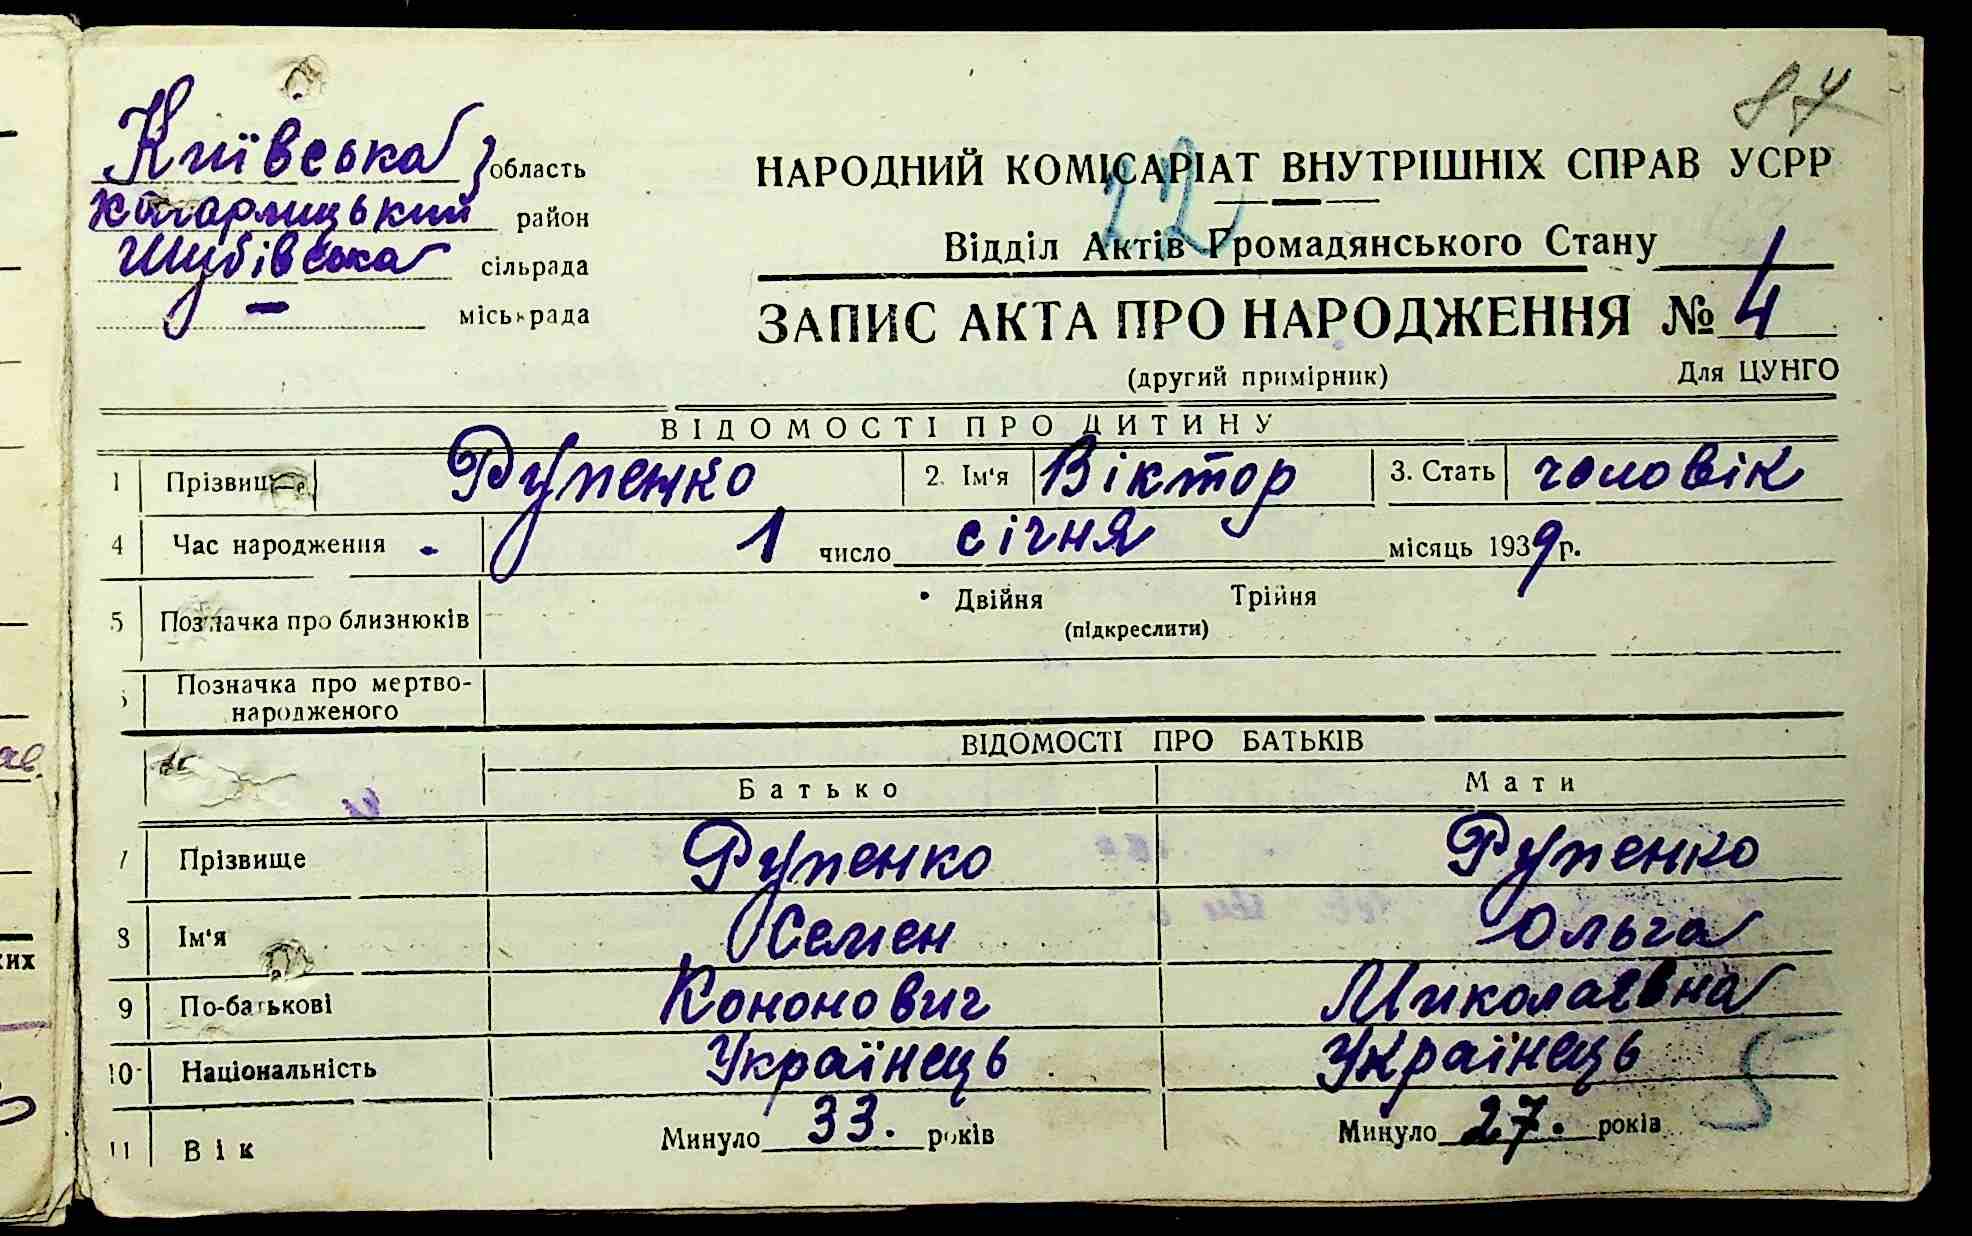 87
Київська область
Кагарлицький район
Шубівська сільрада
міськрада
НАРОДНИЙ КОМІСАРІАТ ВНУТРІШНІХ СПРАВ УСРР
22
Відділ Актів Громадянського Стану
ЗАПИС АКТА ПРО НАРОДЖЕННЯ № 4
(другий примірник) Для ЦУНГО
ВІДОМОСТІ ПРО ДИТИНУ
1 Прізвище Рупенко 2. Ім'я Віктор 3. Стать чоловік
4 Час народження 1 число січня місяць 1939 р.
5 Позначка про близнюків Двійня Трійня
(підкреслити)
Позначка про мертво-
народженого
ВІДОМОСТІ ПРО БАТЬКІВ
Батько Мати
7 Прізвище Рупенко Рупенко
8 Ім'я Семен Ольга
9 По-батькові Кононович Миколаевна
10 Національність Українець Українець
5
11 Вік Минуло 33. років Минуло 27. років